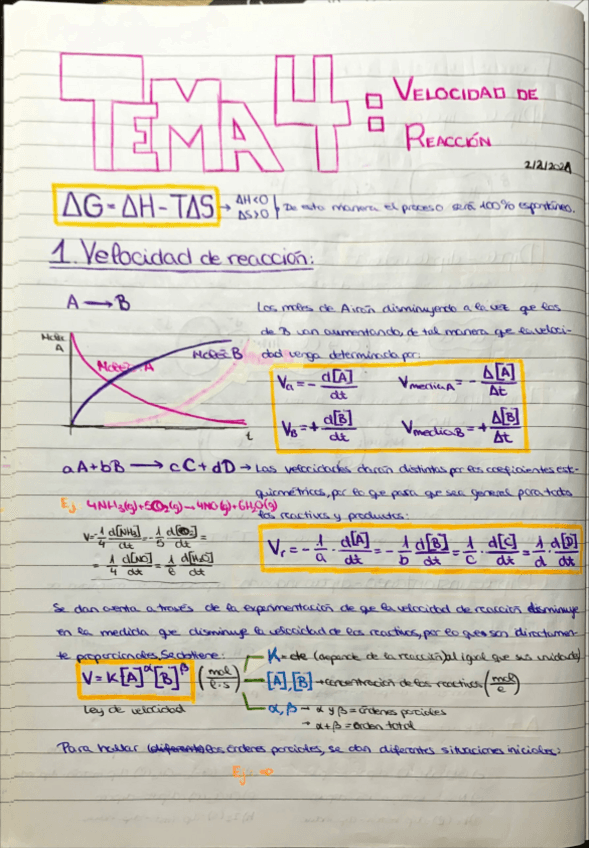 TEMA 4: VELOCIDAD DE
REACCIÓN
2/2/2021
ΔG=ΔH-TΔS → ΔH<0 ΔS>0 } De esta manera el proceso será 100% espontáneo.
1. Velocidad de reacción:
A → B
Los moles de A irán disminuyendo a la vez que los
de B van aumentando, de tal manera que la veloci-
dad venga determinada por:
Moles A
Moles A
Moles B
t
Va = - d[A]/dt
Vmedia A = - Δ[A]/Δt
VB = + d[B]/dt
Vmedia B = + Δ[B]/Δt
aA+bB → cC+dD → Las velocidades darán distintas por los coeficientes est-
quiométricos, por lo que para que sea general para todos
los reactivos y productos:
Ej 4NH3(g)+5O2(g)→4NO(g)+6H2O(g)
V=-1/4 d[NH3]/dt=-1/5 d[O2]/dt=
=1/4 d[NO]/dt=1/6 d[H2O]/dt
Vr = - 1/a · d[A]/dt = - 1/b d[B]/dt = 1/c · d[C]/dt = 1/d · d[D]/dt
Se dan cuenta a través de la experimentación de que la velocidad de reacción disminuye
en la medida que disminuye la velocidad de los reactivos, por lo que son directamen-
te proporcionales, Se obtiene:
K = cte (depende de la reacción) al igual que sus unidades
V = K[A]^α[B]^β (mol/l·s)
[A],[B] → concentración de los reactivos (mol/l)
Ley de velocidad
α,β → α y β = órdenes parciales
→ α+β = orden total
Para hallar (diferente) los órdenes parciales, se dan diferentes situaciones iniciales:
Ej →